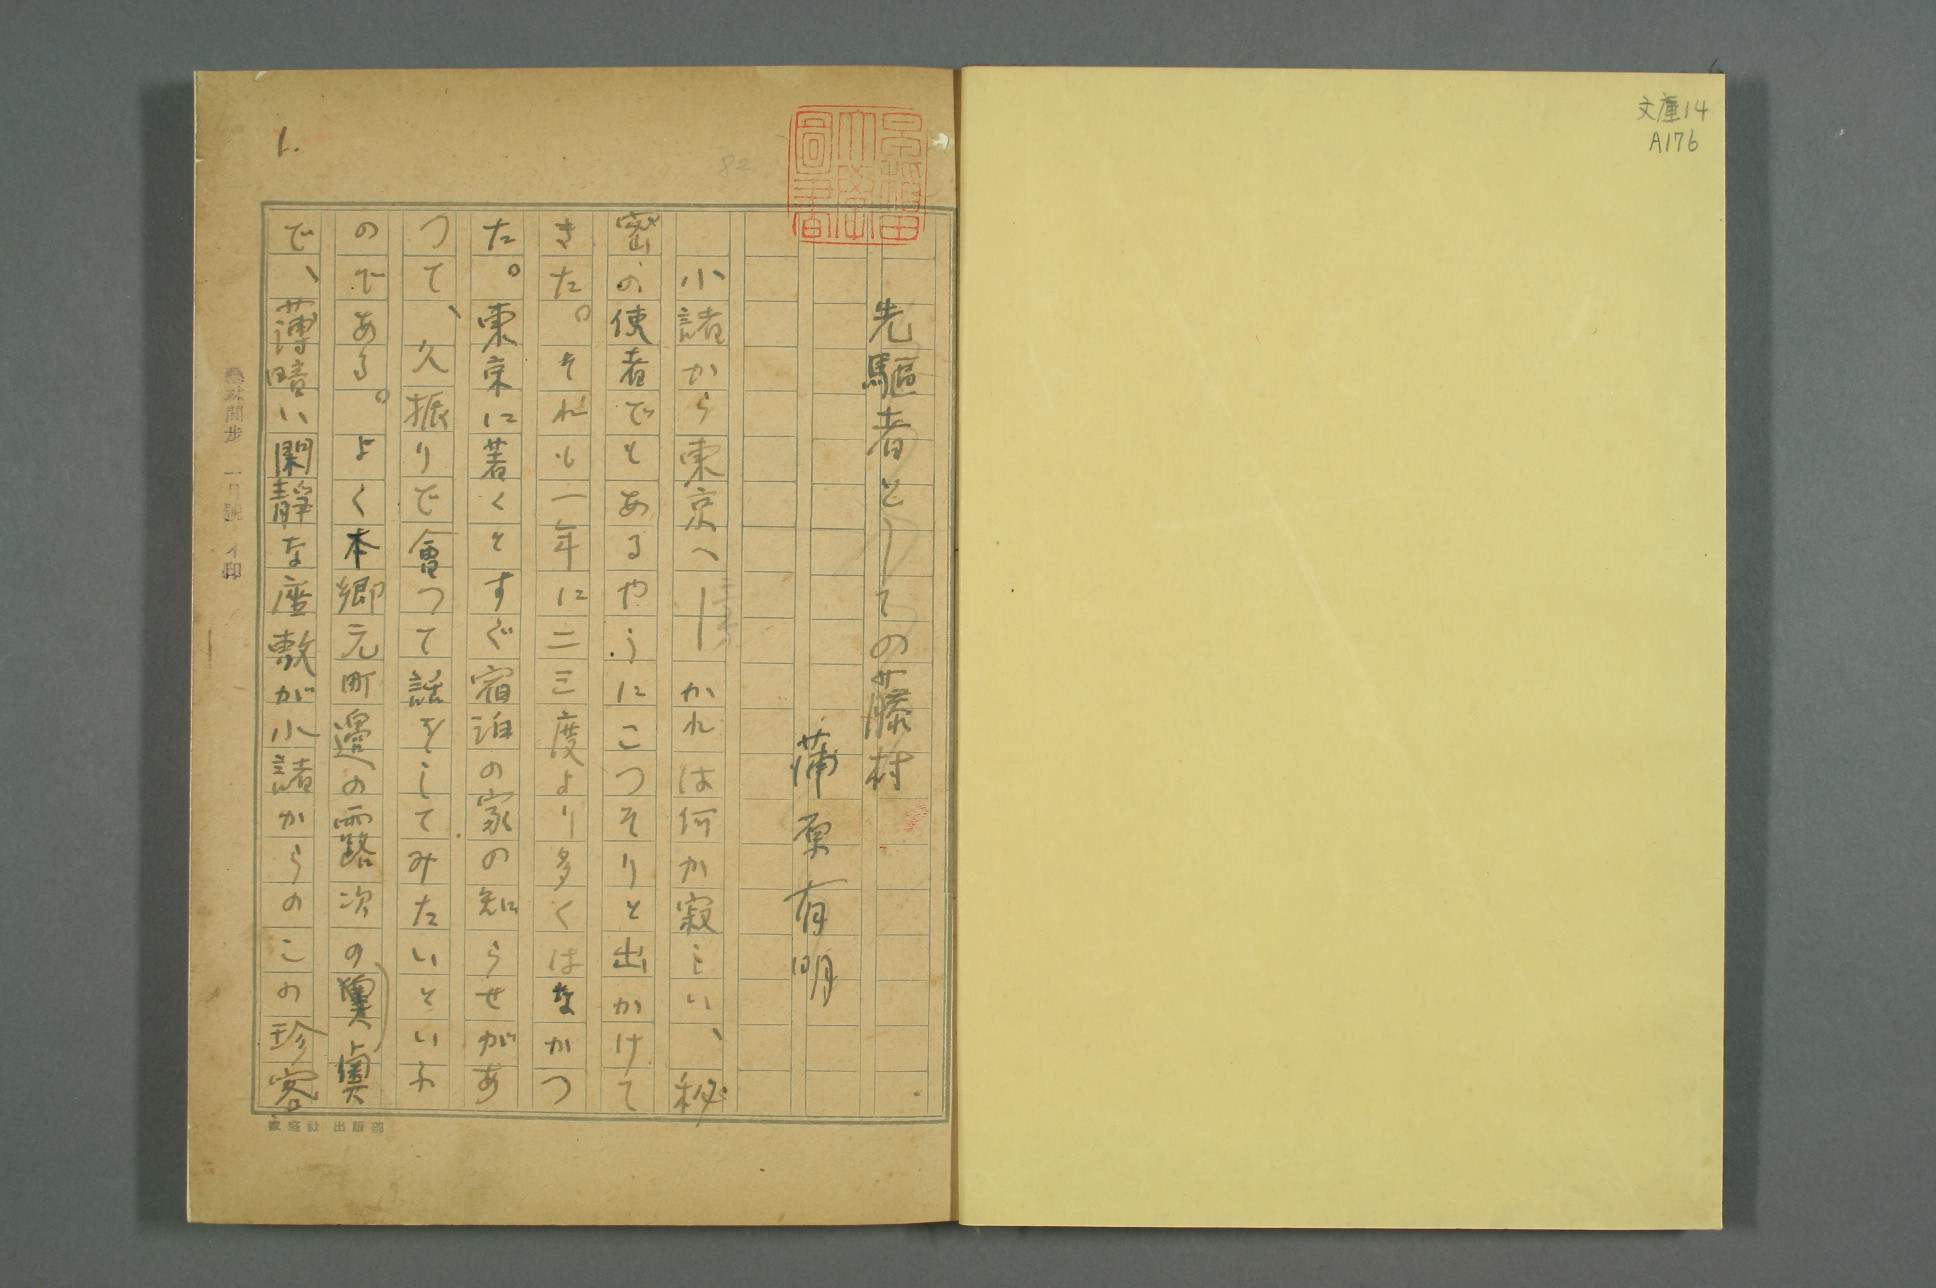 文庫14
A176
早稲田大学図書
先驅者としての藤村
蒲原有明
小諸から東京へ——かれは何か寂しい、秘
密の使者でもあるやうにこつそりと出かけて
きた。それも一年に二三度より多くはなかつ
た。東京に著くとすぐ宿泊の家の知らせがあ
つて、久振りで會つて話をしてみたいといふ
のである。よく本郷元町邊の露次の奧
で、薄暗い閑靜な座敷が小諸からのこの珍客
1.
82
出版部